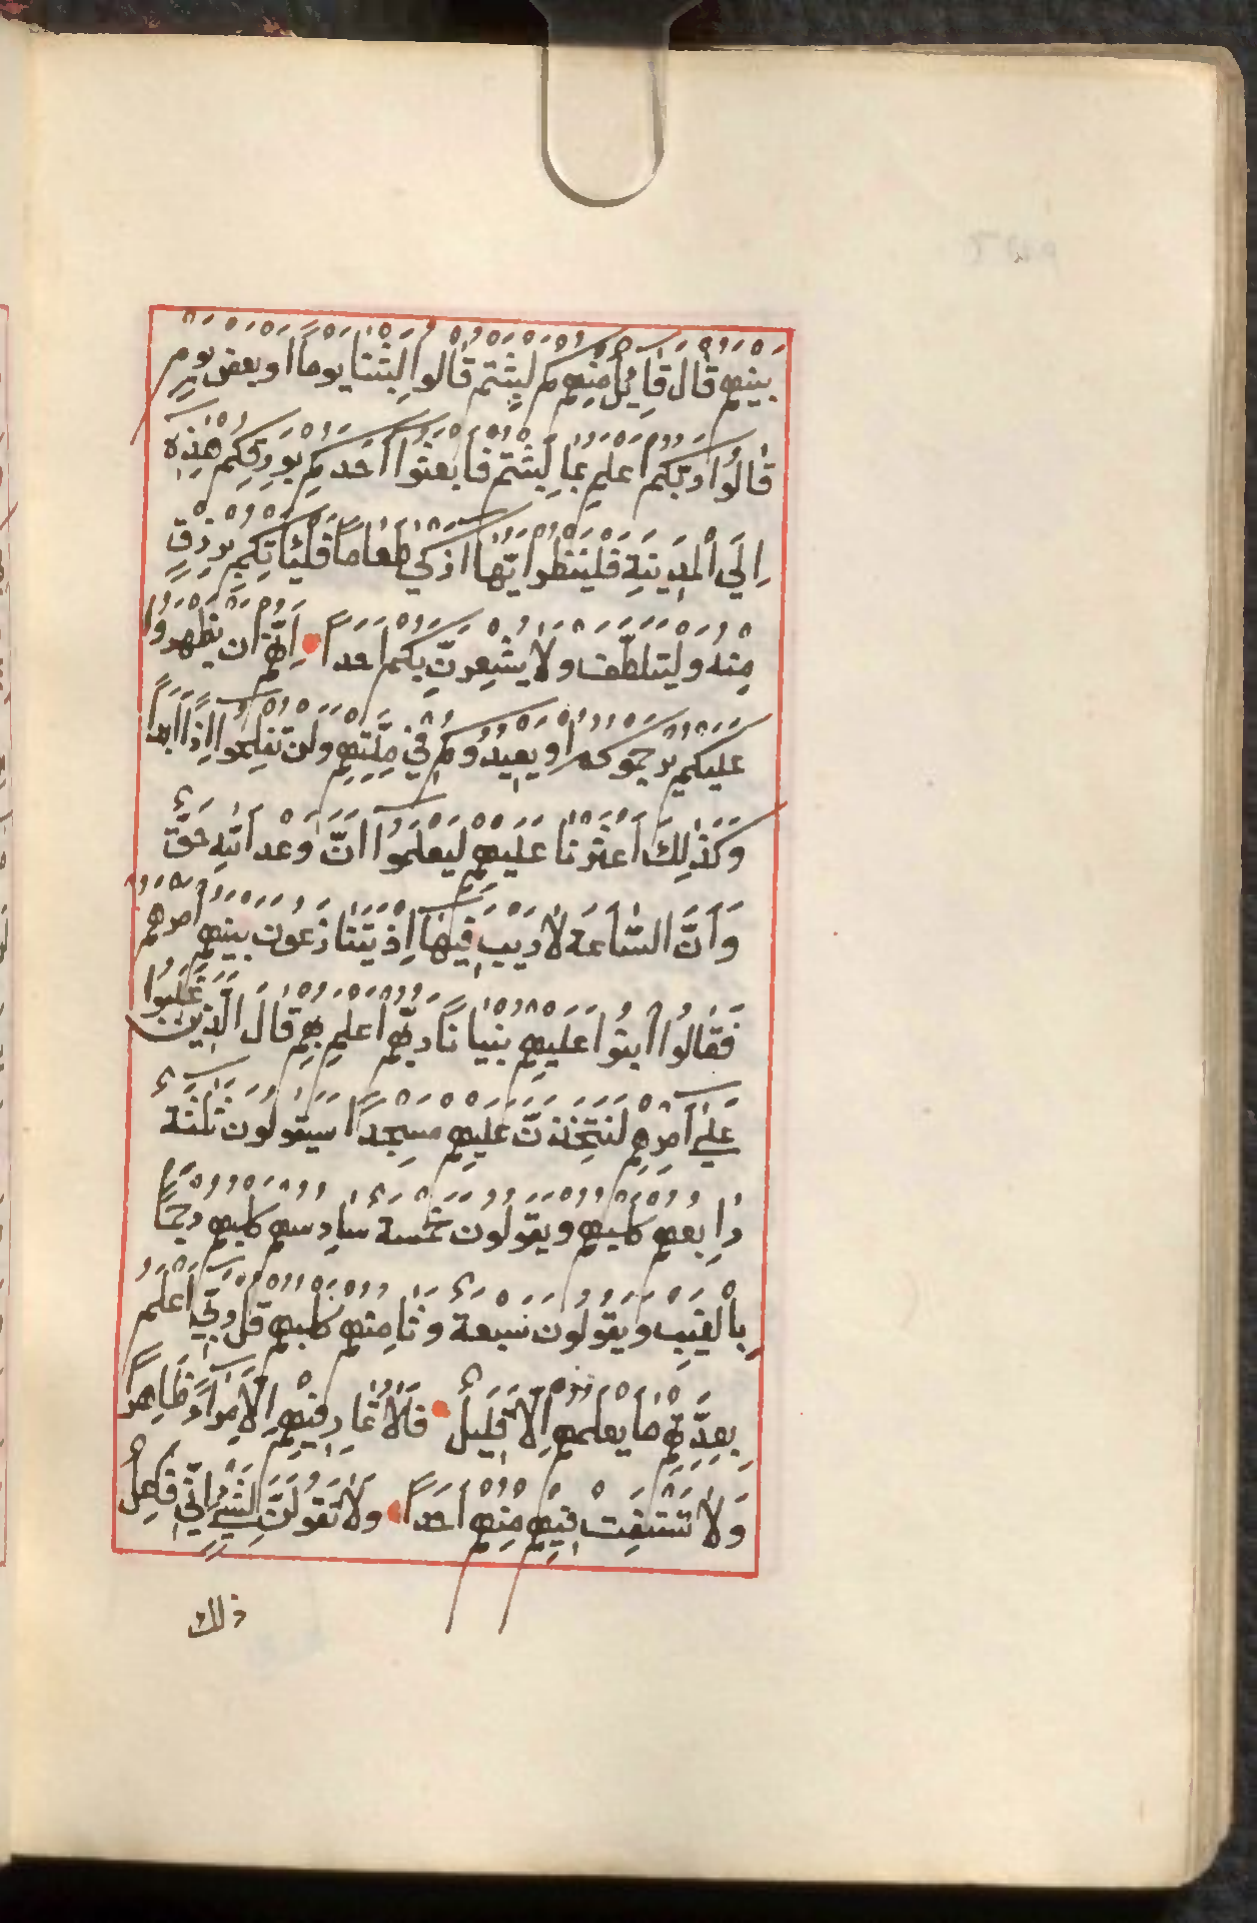 بَيْنَهُمْ قَالَ قَائِلٌ مِنْهُمْ كَمْ لَبِثْتُمْ قَالُوا لَبِثْنَا يَوْمًا أَوْ بَعْضَ يَوْمٍ
قَالُوا رَبُّكُمْ أَعْلَمُ بِمَا لَبِثْتُمْ فَابْعَثُوا أَحَدَكُمْ بِوَرِقِكُمْ هَذِهِ
إِلَى الْمَدِينَةِ فَلْيَنْظُرْ أَيُّهَا أَزْكَى طَعَامًا فَلْيَأْتِكُمْ بِرِزْقٍ
مِنْهُ وَلْيَتَلَطَّفْ وَلَا يُشْعِرَنَّ بِكُمْ أَحَدًا إِنَّهُمْ إِنْ يَظْهَرُوا
عَلَيْكُمْ يَرْجُمُوكُمْ أَوْ يُعِيدُوكُمْ فِي مِلَّتِهِمْ وَلَنْ تُفْلِحُوا إِذًا أَبَدًا
وَكَذَلِكَ أَعْثَرْنَا عَلَيْهِمْ لِيَعْلَمُوا أَنَّ وَعْدَ اللَّهِ حَقٌّ
وَأَنَّ السَّاعَةَ لَا رَيْبَ فِيهَا إِذْ يَتَنَازَعُونَ بَيْنَهُمْ أَمْرَهُمْ
فَقَالُوا ابْنُوا عَلَيْهِمْ بُنْيَانًا رَبُّهُمْ أَعْلَمُ بِهِمْ قَالَ الَّذِينَ غَلَبُوا
عَلَى أَمْرِهِمْ لَنَتَّخِذَنَّ عَلَيْهِمْ مَسْجِدًا سَيَقُولُونَ ثَلَثَةٌ
رَابِعُهُمْ كَلْبُهُمْ وَيَقُولُونَ خَمْسَةٌ سَادِسُهُمْ كَلْبُهُمْ رَجْمًا
بِالْغَيْبِ وَيَقُولُونَ سَبْعَةٌ وَثَامِنُهُمْ كَلْبُهُمْ قُلْ رَبِّي أَعْلَمُ
بِعِدَّتِهِمْ مَا يَعْلَمُهُمْ إِلَّا قَلِيلٌ فَلَا تُمَارِ فِيهِمْ إِلَّا مِرَاءً ظَاهِرًا
وَلَا تَسْتَفْتِ فِيهِمْ مِنْهُمْ أَحَدًا وَلَا تَقُولَنَّ لِشَيْءٍ إِنِّي فَاعِلٌ
ذلك